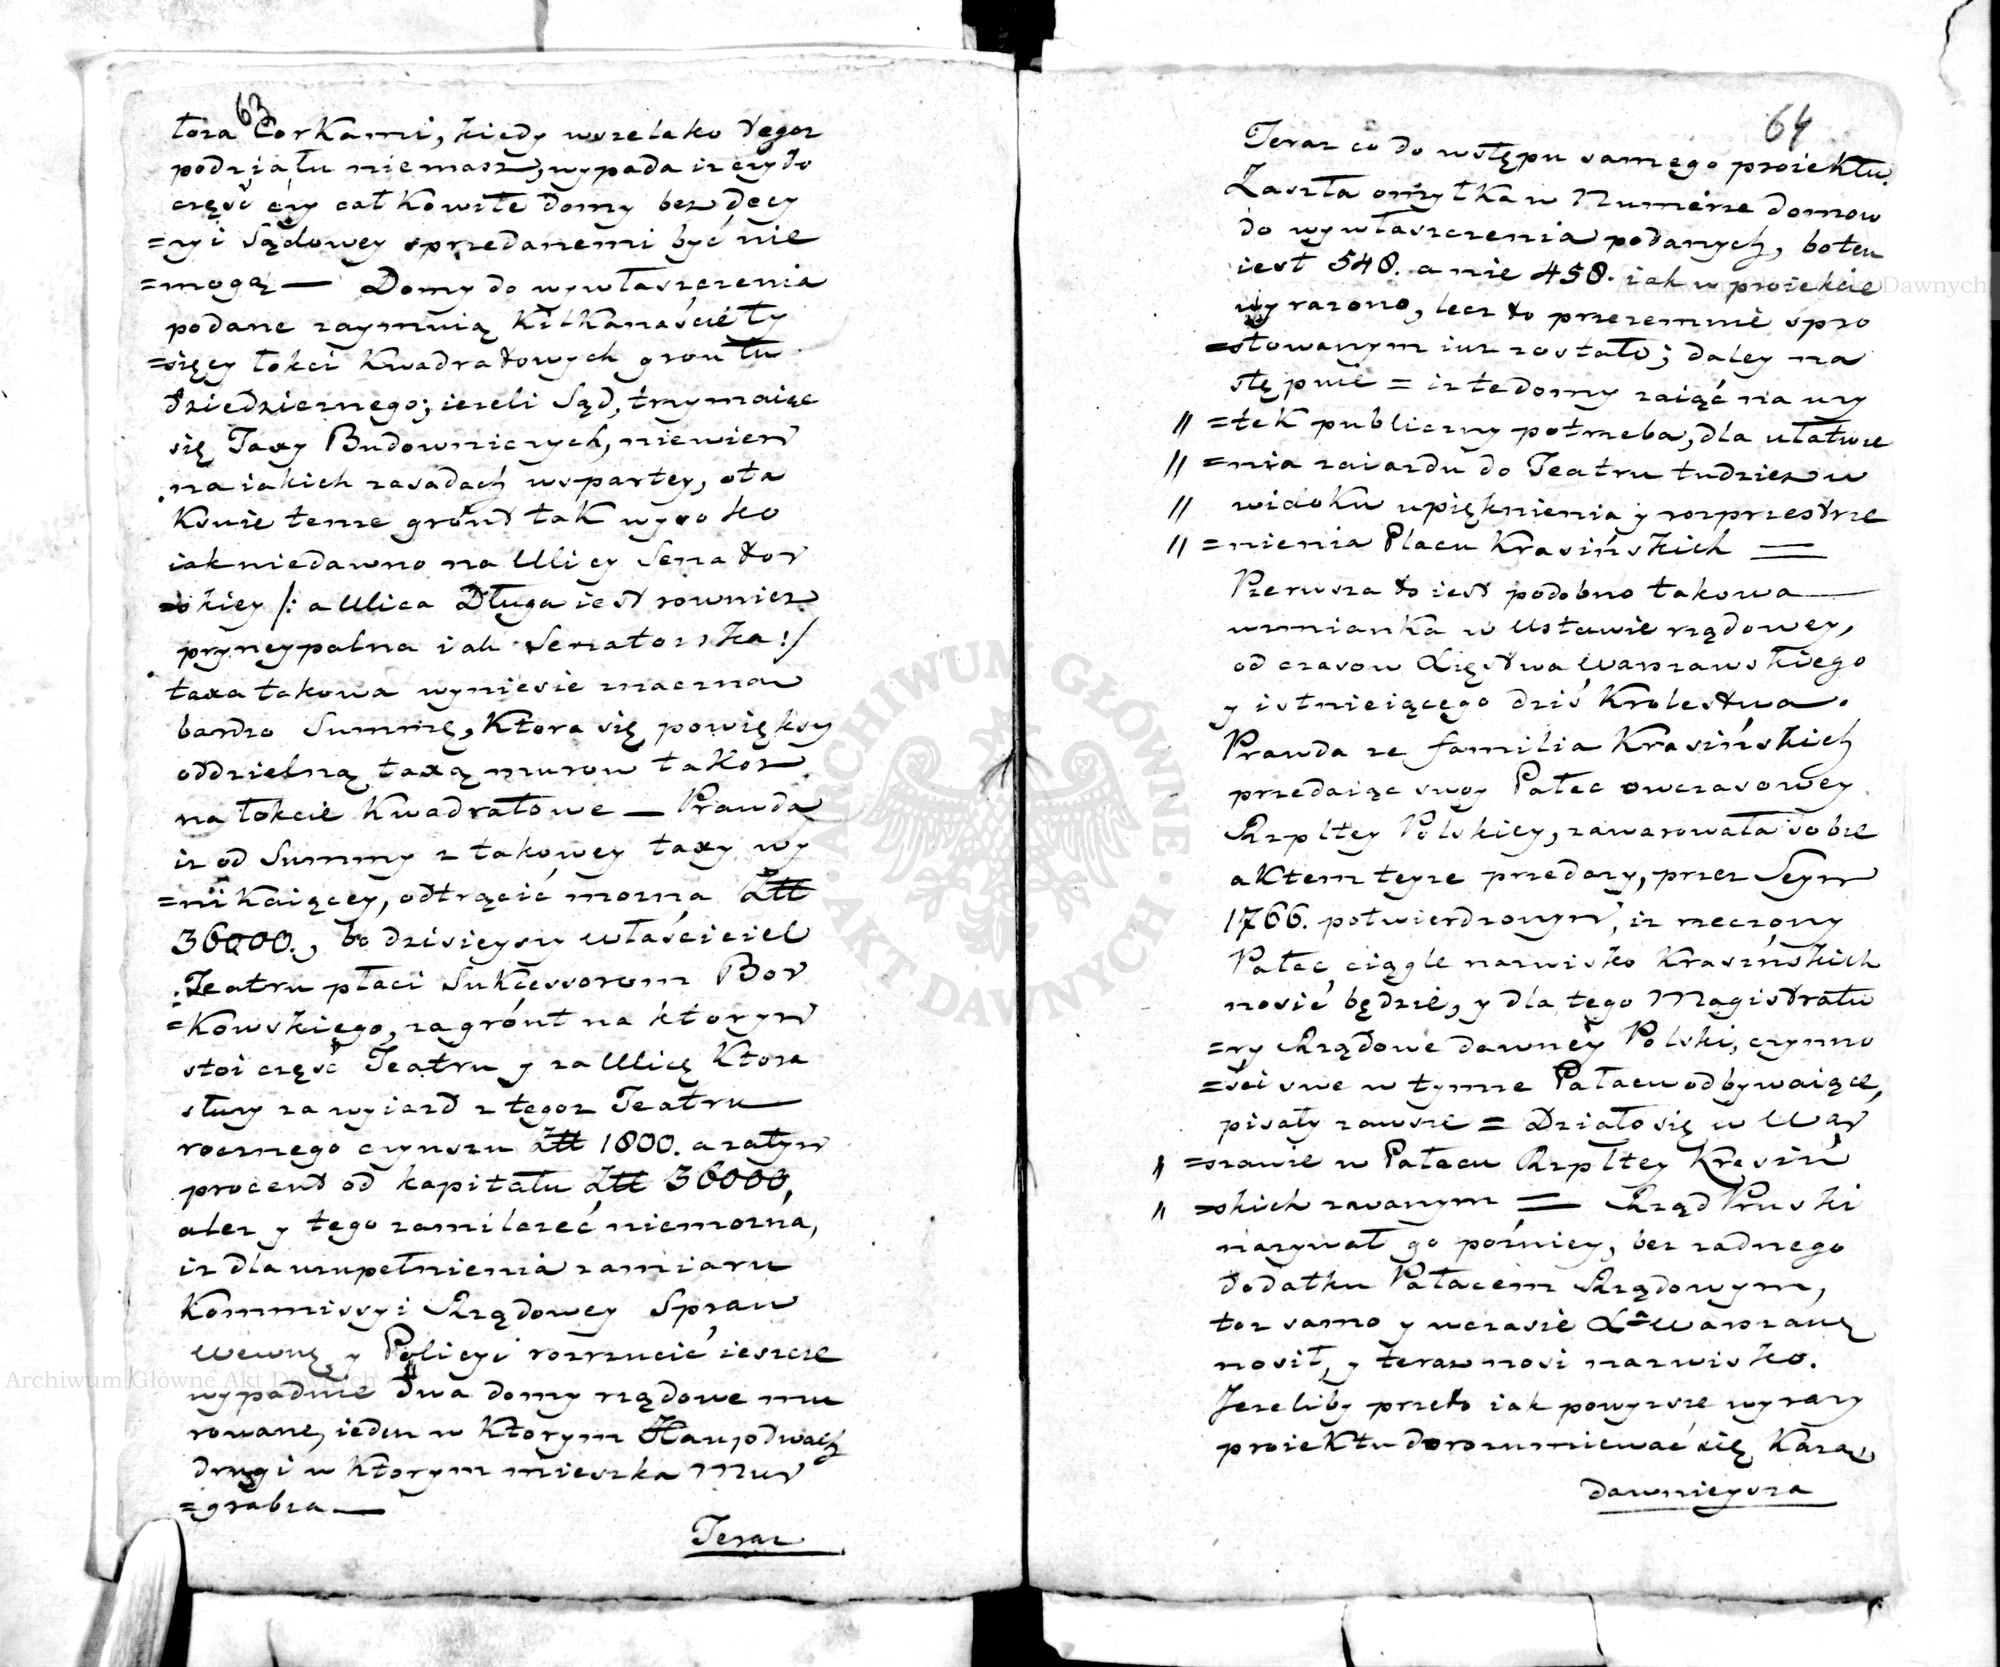 63
tora Corkami, kiedy wszelako tegoż
podziału niemasz, wypada iż czy to
część czy całkowite domy bez decy
=zyi Sądowey sprzedanemi być nie
=mogą — Domy do wywłaszczenia
podane zaymuią kilkanaście ty
=sięcy łokci kwadratowych gruntu
dziedzicznego; ieżeli Sąd, trzymaiąc
się Taxy Budowniczych, niewiem
na iakich zasadach wspartey, ota
ksuie tenże grónt tak wysoko
iak niedawno na Ulicy Senator
=skiey /: a Ulica Długa iest rownież
pryncypalna iak Senatorska :/
taxa takowa wyniesie znaczną
bardzo Summę, ktora się powiększy
oddzielną taxą murow takoż
na łokcie kwadratowe — Prawda
iż od Summy z takowey taxy wy
=nikaiącey, odtrącić można Złł
36000., bo dzisieyszy właściciel
Teatru płaci Sukcessorom Bor
=kowskiego, za grónt na ktorym
stoi część Teatru y za Ulicę ktora
służy za wyiazd z tegoż Teatru
rocznego czynszu Złł 1800. a zatym
procent od kapitału Złł 36000,
ależ y tego zamilczeć niemożna,
iż dla uzupełnienia zamiaru
Kommissyi Rządowey Spraw
Wewnę. y Policyi rozrzucić ieszcze
wypadnie dwa domy rządowe mu
rowane, ieden w ktorym Haupdwach
drugi w ktorym mieszka Mur
=grabia —
Teraz
64
Teraz co do wstępu samego proiektu.
Zaszła omyłka w Numerze domow
do wywłaszczenia podanych, bo ten
iest 548. a nie 458. iak w proiekcie
wyrażono, lecz to przezemnie spro
=stowanym iuż zostało; daley na
stępuie = iż te domy zaiąć na uży
// =tek publiczny potrzeba, dla ułatwie
// =nia zaiazdu do Teatru tudzież w
// widoku upięknienia y rozprzestrze
// =nienia Placu Krasińskich =
Pierwsza to iest podobno takowa
wzmianka w Ustawie rządowey,
od czasow Xięstwa Warszawskiego
y istnieiącego dziś Krolestwa.
Prawda że familia Krasińskich
przedaiąc swoy Pałac owczasowey
Rzpltey Polskiey, zawarowała sobie
aktem teyże przedaży, przez Seym
1766. potwierdzonym, iż rzeczony
Pałac ciągle nazwisko Krasińskich
nosić będzie, y dla tego Magistratu
=ry Rządowe dawney Polski, czynno
=ści swe w tymże Pałacu odbywaiące,
pisały zawsze = Działo się w War
// =szawie w Pałacu Rzpltey Krasiń
// =skich zwanym = Rząd Pruski
nazywał go poźniey, bez żadnego
dodatku Pałacem Rządowym,
toż samo y w czasie Xa Warszawę
nosił, y teraz nosi nazwisko.
Jeżeliby przeto iak powyższe wyrazy
proiektu dorozumiewać się każą
dawnieysza